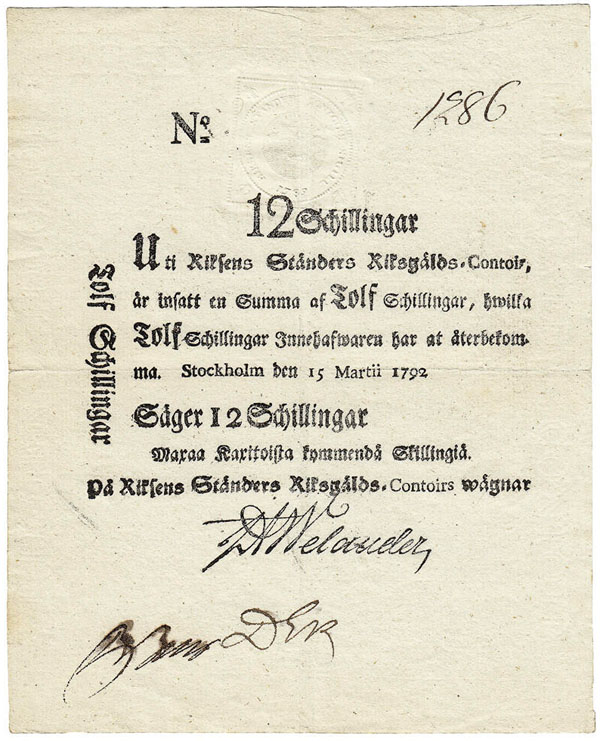 Nº 1286
12 Schillingar
Uti Riksens Ständers Riksgälds-Contoir,
är insatt en Summa af Tolf Schillingar, hwilka
Tolf Schillingar Innehafwaren har at återbekom-
ma. Stockholm den 15 Martii 1792
Säger 12 Schillingar
Maxaa Kaxitoista kymmendä Skillingiä.
På Riksens Ständers Riksgälds-Contoirs wägnar
Welander
Tolf Schillingar